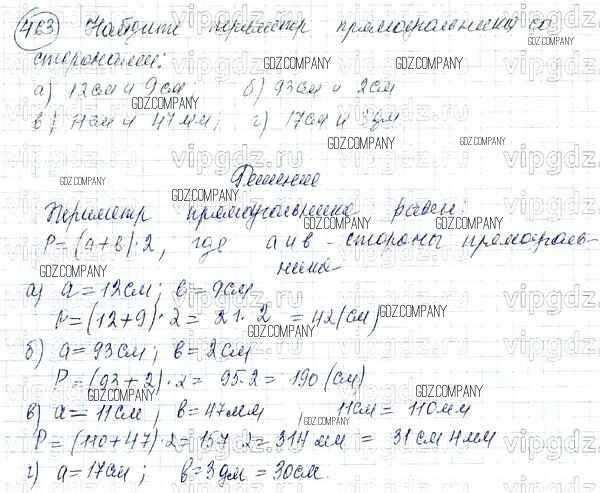 463) Найдите периметр прямоугольника со
сторонами:
а) 12см и 9см, б) 93см и 2см
в) 11см и 47мм; г) 17см и 3дм
Решение
Периметр прямоугольника равен:
P=(a+b)·2, где a и b - стороны прямоуголь-
ника
а) a=12см; b=9см
P=(12+9)·2=21·2=42(см)
б) a=93см; b=2см
P=(93+2)·2=95·2=190(см)
в) a=11см, b=47мм, 11см=110мм
P=(110+47)·2=157·2=314мм=31см4мм
г) a=17см; b=3дм=30см.
GDZ.COMPANY
vipgdz.ru